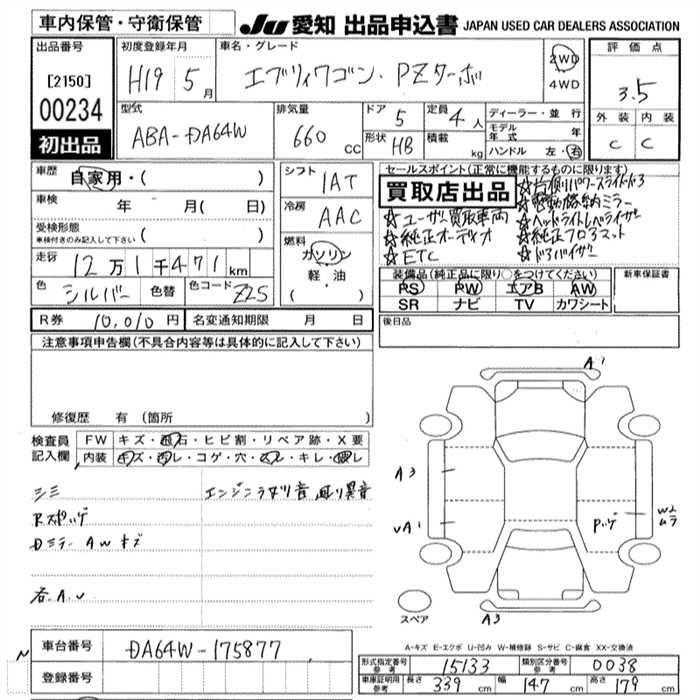 車内保管・守衛保管
JU 愛知 出品申込書 JAPAN USED CAR DEALERS ASSOCIATION
出品番号
[2150]
00234
初出品
初度登録年月
H19 5月
車名・グレード
エブリィワゴン・PZターボ
2WD
4WD
評価点
3.5
外装 内装
C C
型式
ABA-DA64W
排気量
660 cc
ドア 5
形状 HB
定員 4人
積載 kg
ディーラー・並行
モデル年式 年
ハンドル 左・右
車歴
自家用・( )
車検
年 月( 日)
受検形態
車検付きのみ記入して下さい ( )
走行
12万1千471km
色 シルバー 色替 色コード Z2S
シフト
IAT
冷房
AAC
燃料
ガソリン
軽・油
( ・ )
セールスポイント(正常に機能するものに限ります)
買取店出品
☆右側パワースライドドア
☆電動格納ミラー
☆ユーザー買取車両
☆ヘッドライトレベライザー
☆純正オーディオ
☆純正フロアマット
☆ETC
☆ドアバイザー
装備品(純正品に限り○をつけてください)
PS PW エアB AW
SR ナビ TV カワシート
新車保証書
後日品
R券 10,010円
名変通知期限 月 日
注意事項申告欄(不具合内容等は具体的に記入して下さい)
修復歴 有(箇所 )
検査員記入欄
FW キズ・飛石・ヒビ割・リペア跡・X要
内装 キズ・汚レ・コゲ・穴・スレ・キレ・
シミ
エンジンラタツ音 廻り異音
Rスポッゲ
Dミラー AWキズ
各A.U
A1
A3
UA1
Pッゲ
W2
ムラ
A3
スペア
A-キズ E-エクボ U-凹み W-補修跡 S-サビ C-腐食 XX-交換済
車台番号
DA64W-175877
登録番号
型式指定番号 参考 15133
類別区分番号 参考 0038
車庫証明用 参考 長さ 339cm 幅 147cm 高さ 179cm